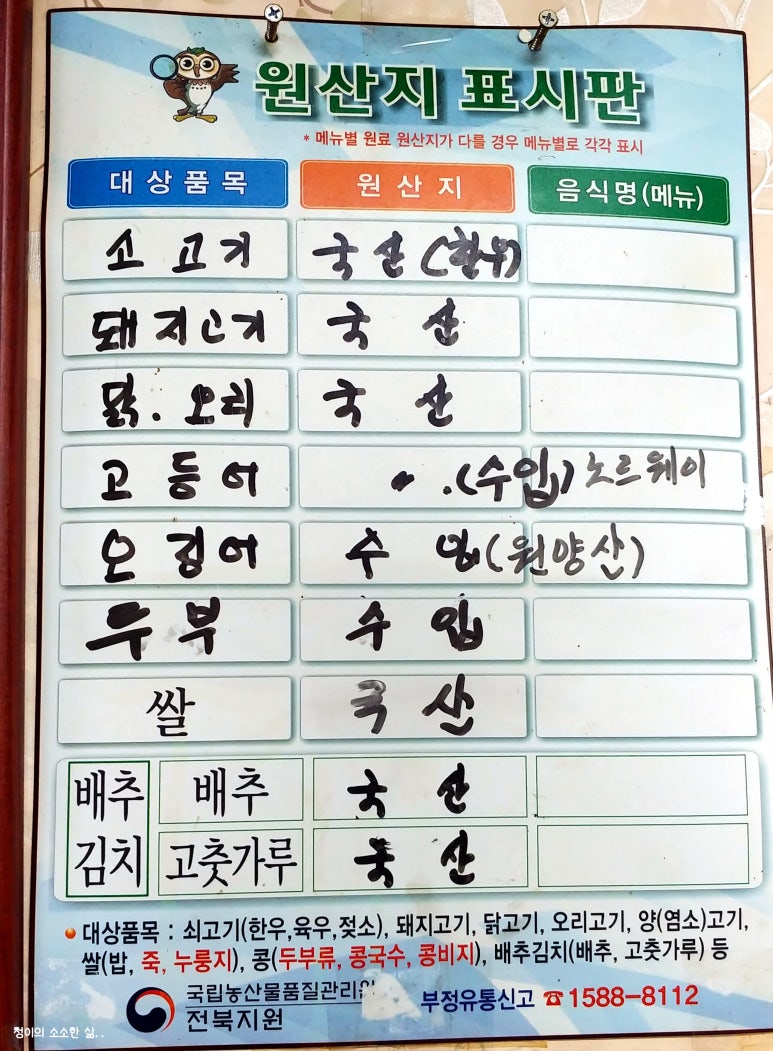 원산지 표시판
* 메뉴별 원료 원산지가 다를 경우 메뉴별로 각각 표시
대상품목 원산지 음식명(메뉴)
소고기 국산(한우)
돼지고기 국산
닭.오리 국산
고등어 .(수입)노르웨이
오징어 수입(원양산)
두부 수입
쌀 국산
배추 배추 국산
김치 고춧가루 국산
대상품목 : 쇠고기(한우,육우,젖소), 돼지고기, 닭고기, 오리고기, 양(염소)고기,
쌀(밥, 죽, 누룽지), 콩(두부류, 콩국수, 콩비지), 배추김치(배추, 고춧가루) 등
국립농산물품질관리원
전북지원
부정유통신고 ☎1588-8112
청이의 소소한 삶..